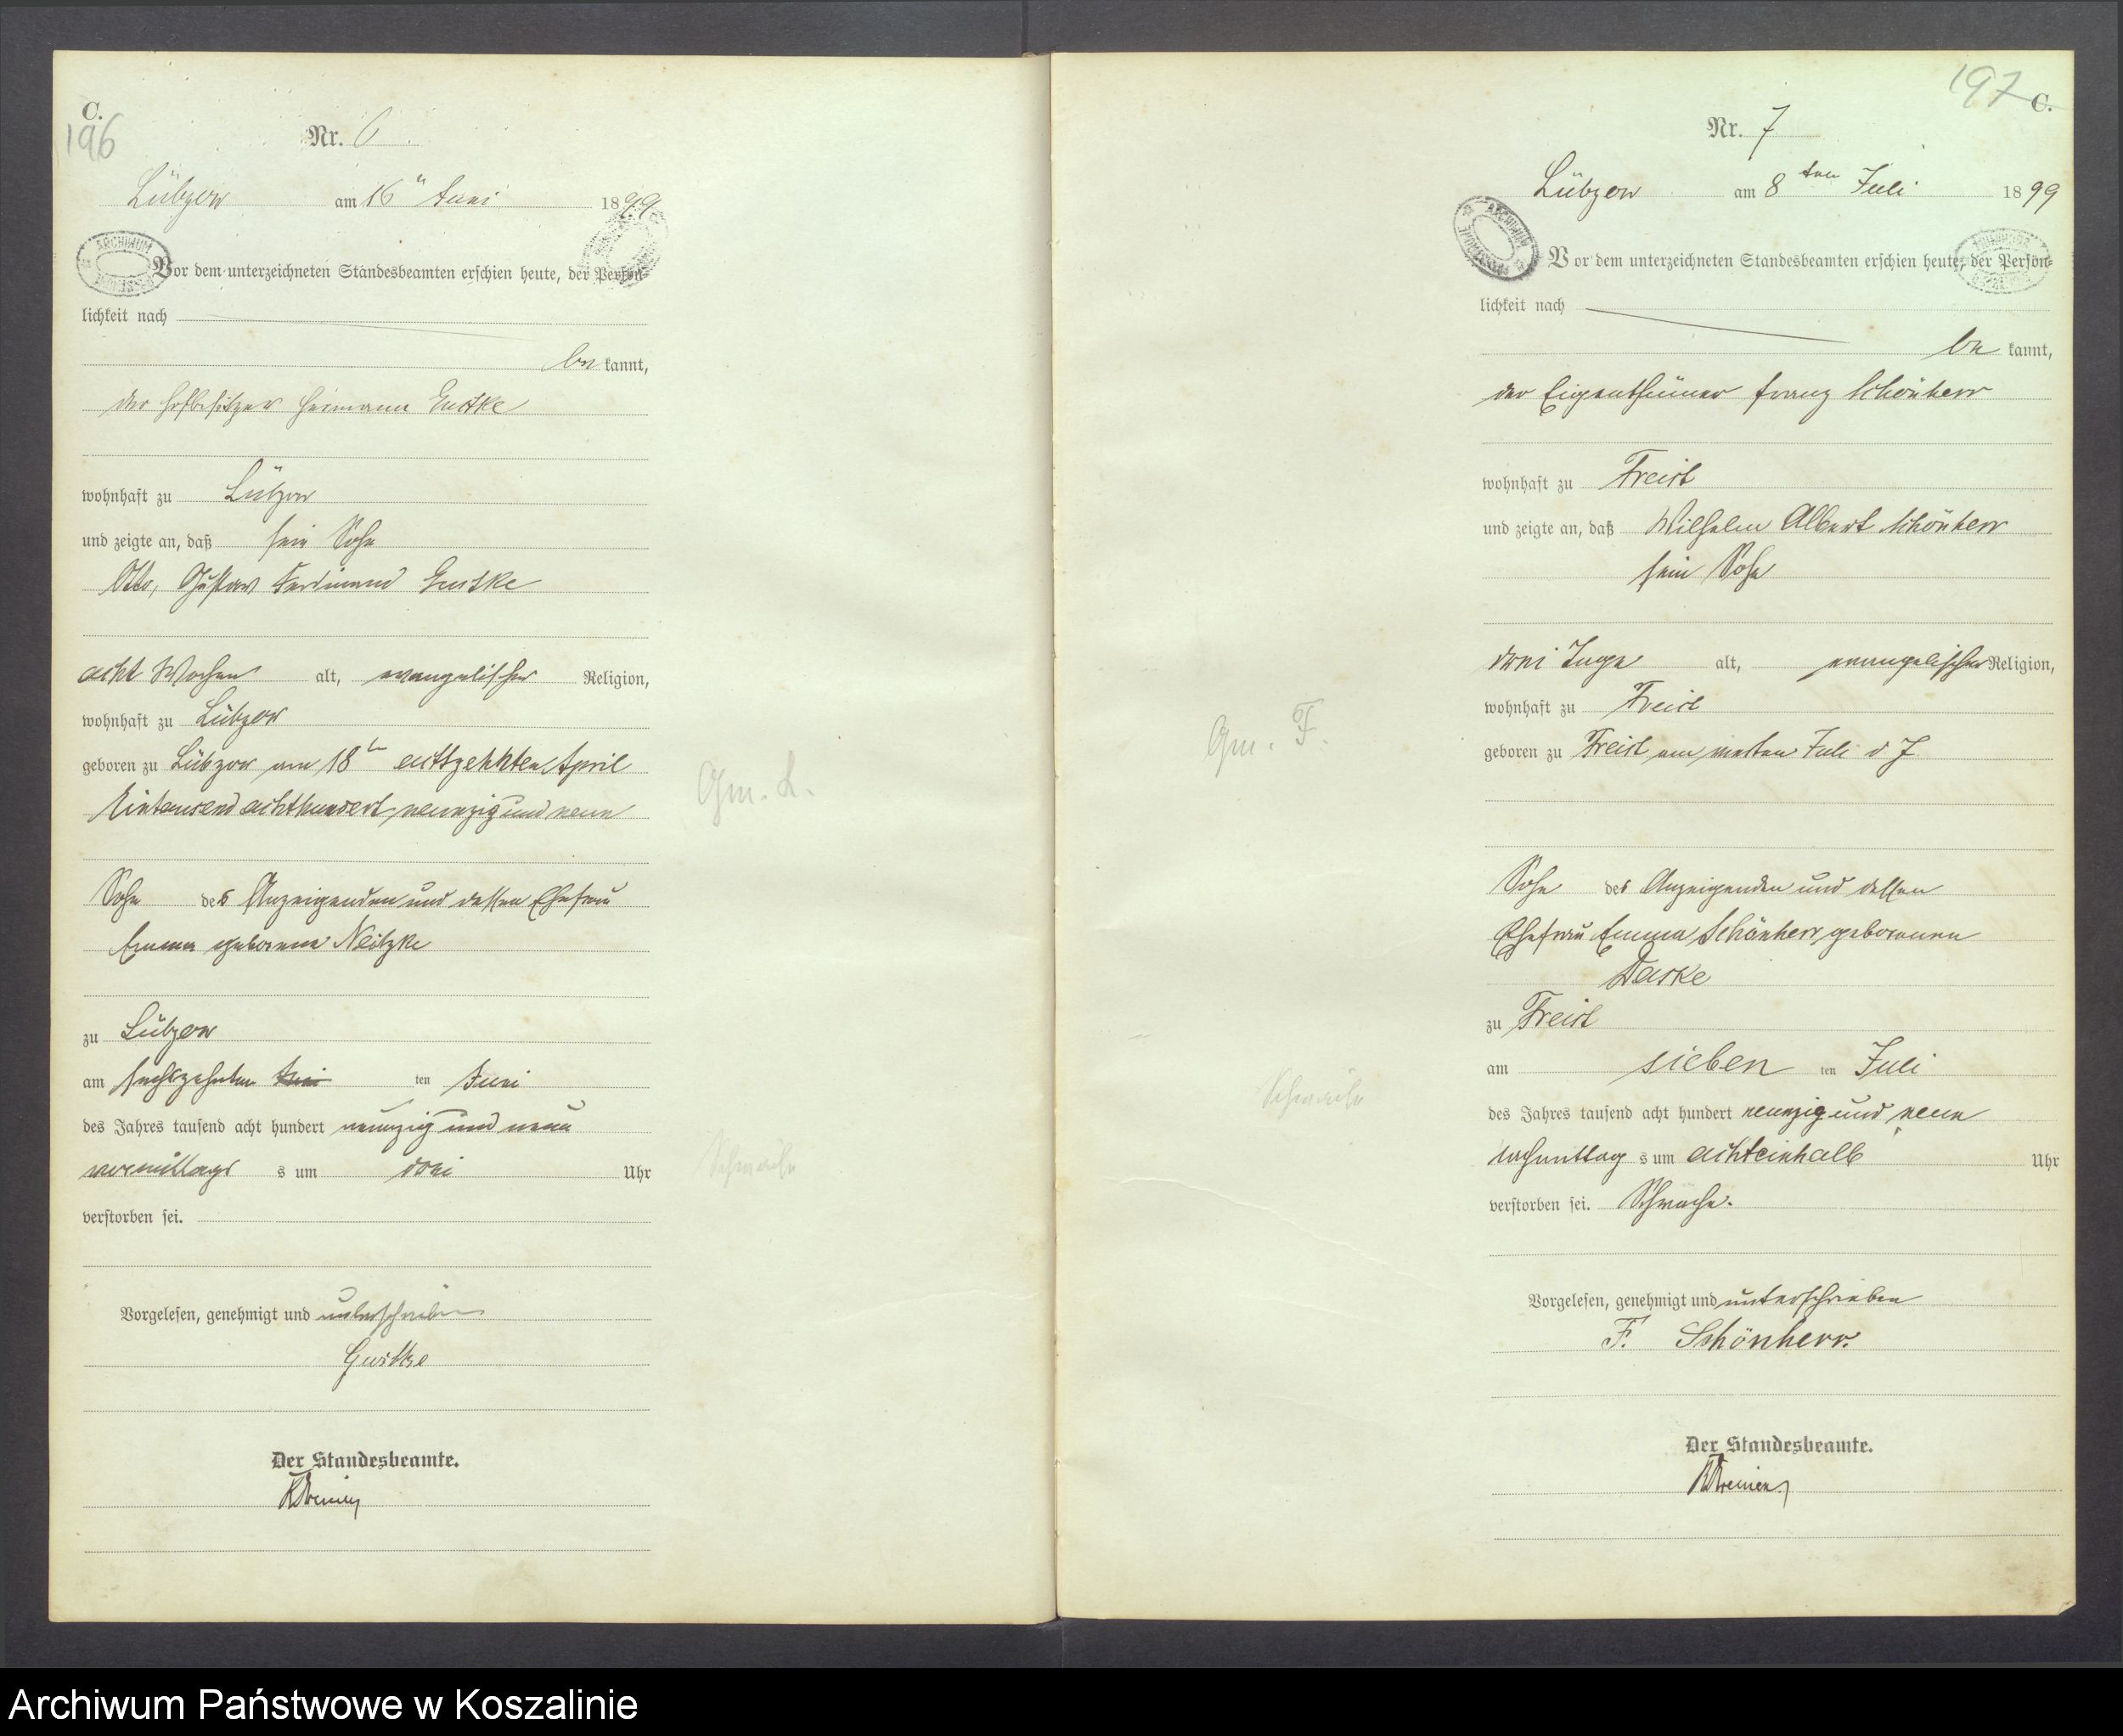 C.
196
Nr. 6
Lübzow am 16ten Juni 1899
ARCHIWUM
Vor dem unterzeichneten Standesbeamten erschien heute, der Persön-
lichkeit nach
be kannt,
der Hofbesitzer Hermann Gustke
wohnhaft zu Lübzow
und zeigte an, daß sein Sohn
Otto, Gustav Ferdinand Gustke
acht Wochen alt, evangelischer Religion,
wohnhaft zu Lübzow
geboren zu Lübzow am 18ten April
Eintausend achthundert neunzig und neun
Gm. L.
Sohn des Anzeigenden und dessen Ehefrau
Emma geborene Neitzke
zu Lübzow
am sechszehnten Juni ten Juni
des Jahres tausend acht hundert neunzig und neun
vormittags s um drei Uhr
Schwäche
verstorben sei.
Vorgelesen, genehmigt und unterschrieben
Gustke
Der Standesbeamte.
197
C.
Nr. 7
Lübzow am 8ten Juli 1899
ARCHIWUM
Vor dem unterzeichneten Standesbeamten erschien heute, der Persön-
lichkeit nach
be kannt,
der Eigenthümer Franz Schönherr
wohnhaft zu Freist
und zeigte an, daß Wilhelm Albert Schönherr
sein Sohn
drei Tage alt, evangelischer Religion,
wohnhaft zu Freist
Gm. F.
geboren zu Freist am vierten Juli d J
Sohn des Anzeigenden und dessen
Ehefrau Emma Schönherr, geborenen
Daske
zu Freist
am sieben ten Juli
Schwäche
des Jahres tausend acht hundert neunzig und neun
nachmittag s um achteinhalb Uhr
verstorben sei. Schwäche.
Vorgelesen, genehmigt und unterschrieben
F. Schönherr.
Der Standesbeamte.
Archiwum Państwowe w Koszalinie